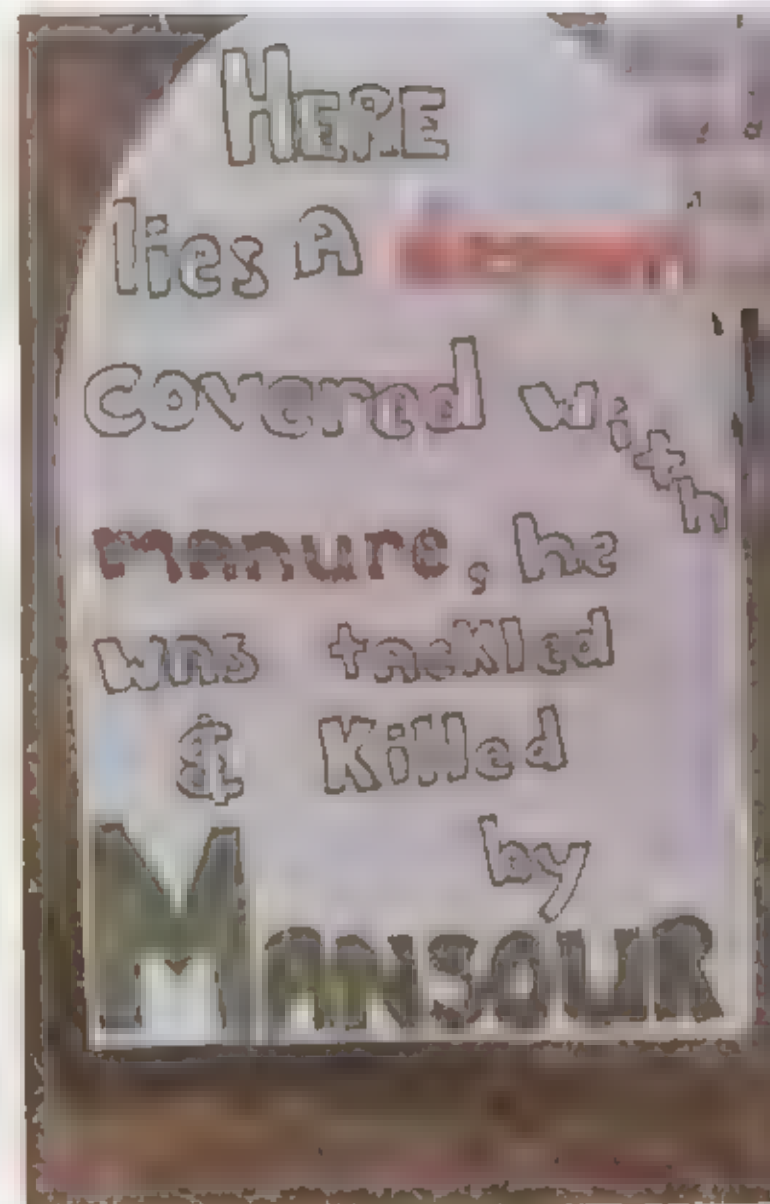 HERE
lies A
covered with
manure, he
was tackled
& Killed
by
MANSOUR